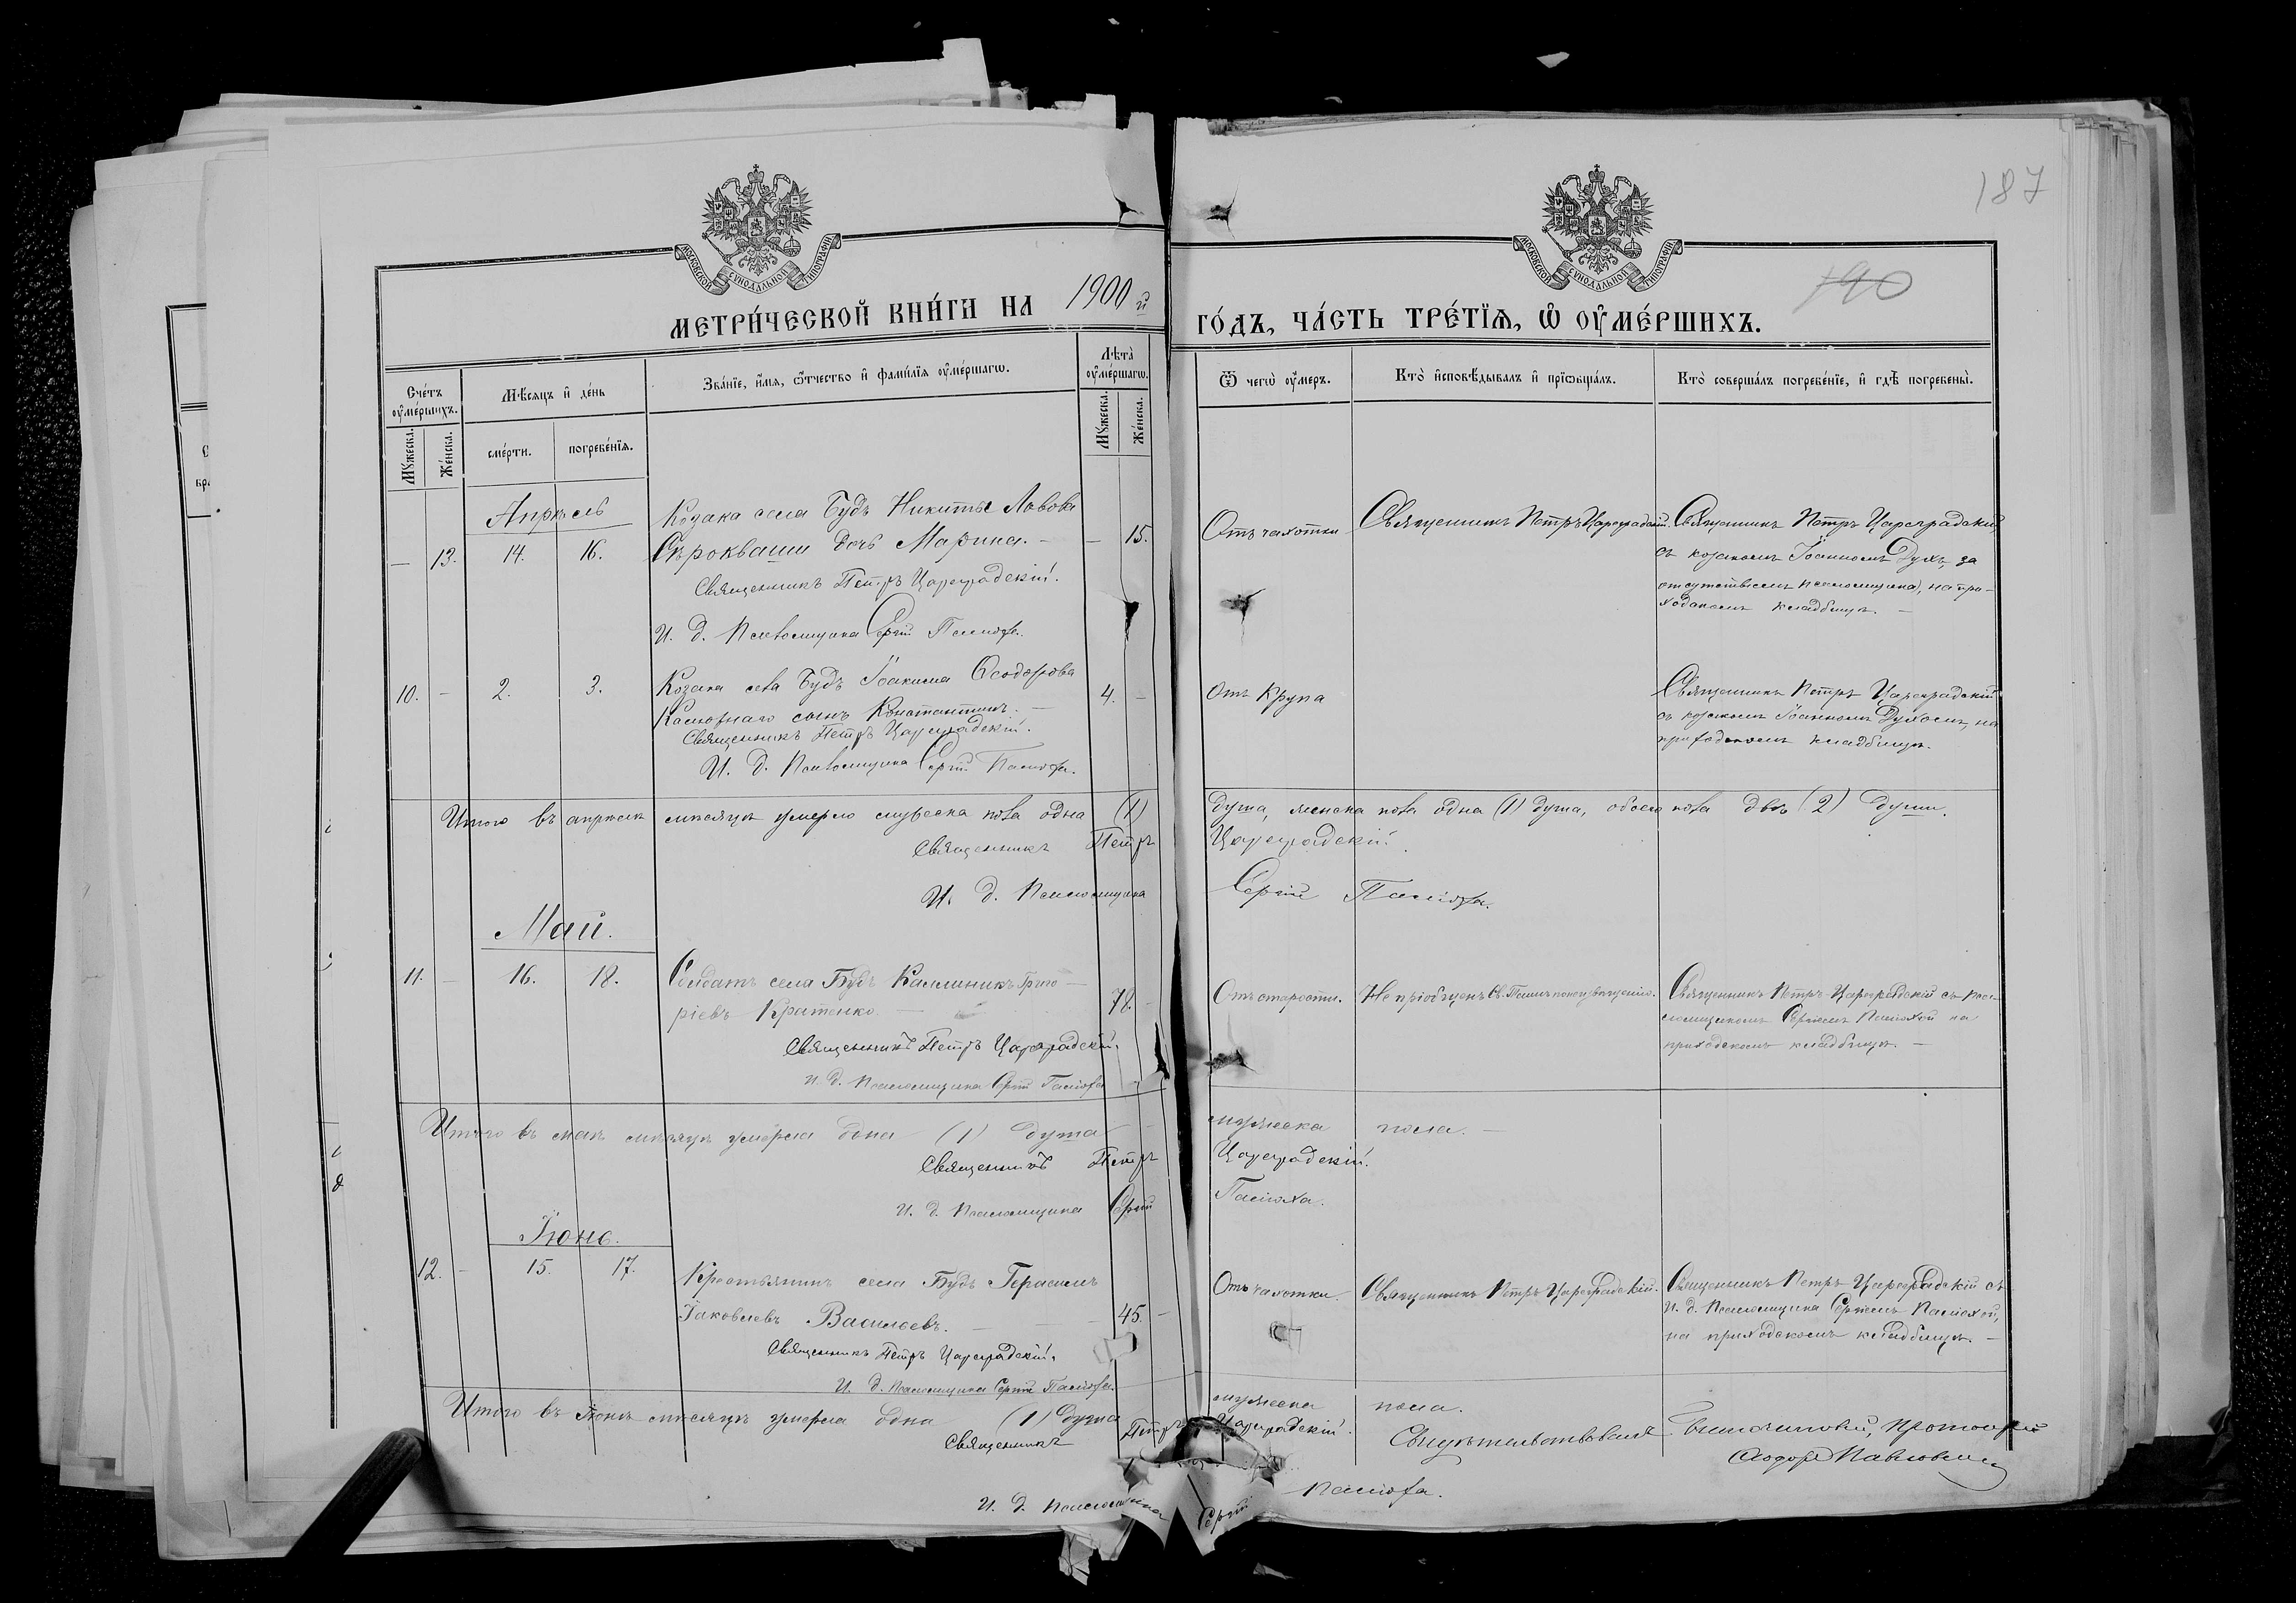 187
190
МОСКОВСКОЙ СУНОДАЛЬНОЙ ТИПОГРАФІИ
МОСКОВСКОЙ СУНОДАЛЬНОЙ ТИПОГРАФІИ
МЕТРИ́ЧЕСКОЙ КНИ́ГИ НА 1900 й
ГО́ДЪ, ЧА́СТЬ ТРЕ́ТІѦ, Ѡ҆ ОУ҆МЕ́РШИХЪ.
Сче́тъ оу҆ме́ршихъ.
Мѣ́сѧцъ и҆ де́нь
Зва́нїе, и҆́мѧ, ѻ҆́тчество и҆ фами́лїѧ оу҆ме́ршагѡ.
Лѣ́та оу҆ме́ршагѡ.
Ѿ чегѡ̀ оу҆́меръ.
Кто̀ и҆сповѣ́дывалъ и҆ прїѡбща́лъ.
Кто̀ соверша́лъ погребе́нїе, и҆ гдѣ̀ погребены̀.
Мꙋ́жеска.
Же́нска.
сме́рти.
погребе́нїѧ.
Мꙋ́жеска.
Же́нска.
Апрѣль
— 13. 14. 16.
Козака села Будъ Никиты Львова
Сѣрокваши дочь Марина. —
— 15.
Священникъ Петръ Цареградскій.
И. д. Псаломщика Сергій Пасюха.
Отъ чахотки
Священникъ Петръ Цареградскій.
Священникъ Петръ Цареградскій,
съ козакомъ Іоанномъ Духъ, за
отсутствіемъ псаломщика, на при-
ходскомъ кладбищѣ. —
10. — 2. 3.
Козака села Будъ Іоакима Ѳеодорова
сынъ Константинъ. —
4. —
Священникъ Петръ Цареградскій.
И. д. Псаломщика Сергій Пасюха.
Отъ крупа
Священникъ Петръ Цареградскій
съ козакомъ Іоанномъ Духомъ, на
приходскомъ кладбищѣ.
Итого въ апрѣлѣ мѣсяцѣ умерло мужеска пола одна (1)
душа, женска пола одна (1) душа, обоего пола двѣ (2) души.
Священникъ Петръ Цареградскій.
И. д. Псаломщика Сергій Пасюха.
Май.
11. — 16. 18.
Солдатъ села Будъ Каллиникъ Григо-
ріевъ Кратенко. —
78. —
Священникъ Петръ Цареградскій.
И. д. Псаломщика Сергій Пасюха
Отъ старости.
Не пріобщенъ Св. Таинъ
Священникъ Петръ Цареградскій съ пса-
ломщикомъ Сергіемъ Пасюхой на
приходскомъ кладбищѣ. —
Итого въ маѣ мѣсяцѣ умерла одна (1) душа
мужеска пола. —
Священникъ Петръ Цареградскій.
И. д. Псаломщика Сергій Пасюха.
Іюнь.
12. — 15. 17.
Крестьянинъ села Будъ Герасимъ
Іаковлевъ Васильевъ. —
45. —
Священникъ Петръ Цареградскій.
И. д. Псаломщика Сергій Пасюха.
Отъ чахотки.
Священникъ Петръ Цареградскій.
Священникъ Петръ Цареградскій съ
и. д. Псаломщика Сергіемъ Пасюхой,
на приходскомъ кладбищѣ. —
Итого въ Іюнѣ мѣсяцѣ умерла одна (1) душа
мужеска пола.
Священникъ Петръ Цареградскій.
И. д. Псаломщика Сергій Пасюха.
Свидѣтельствовалъ Благочинный, Протоіерей